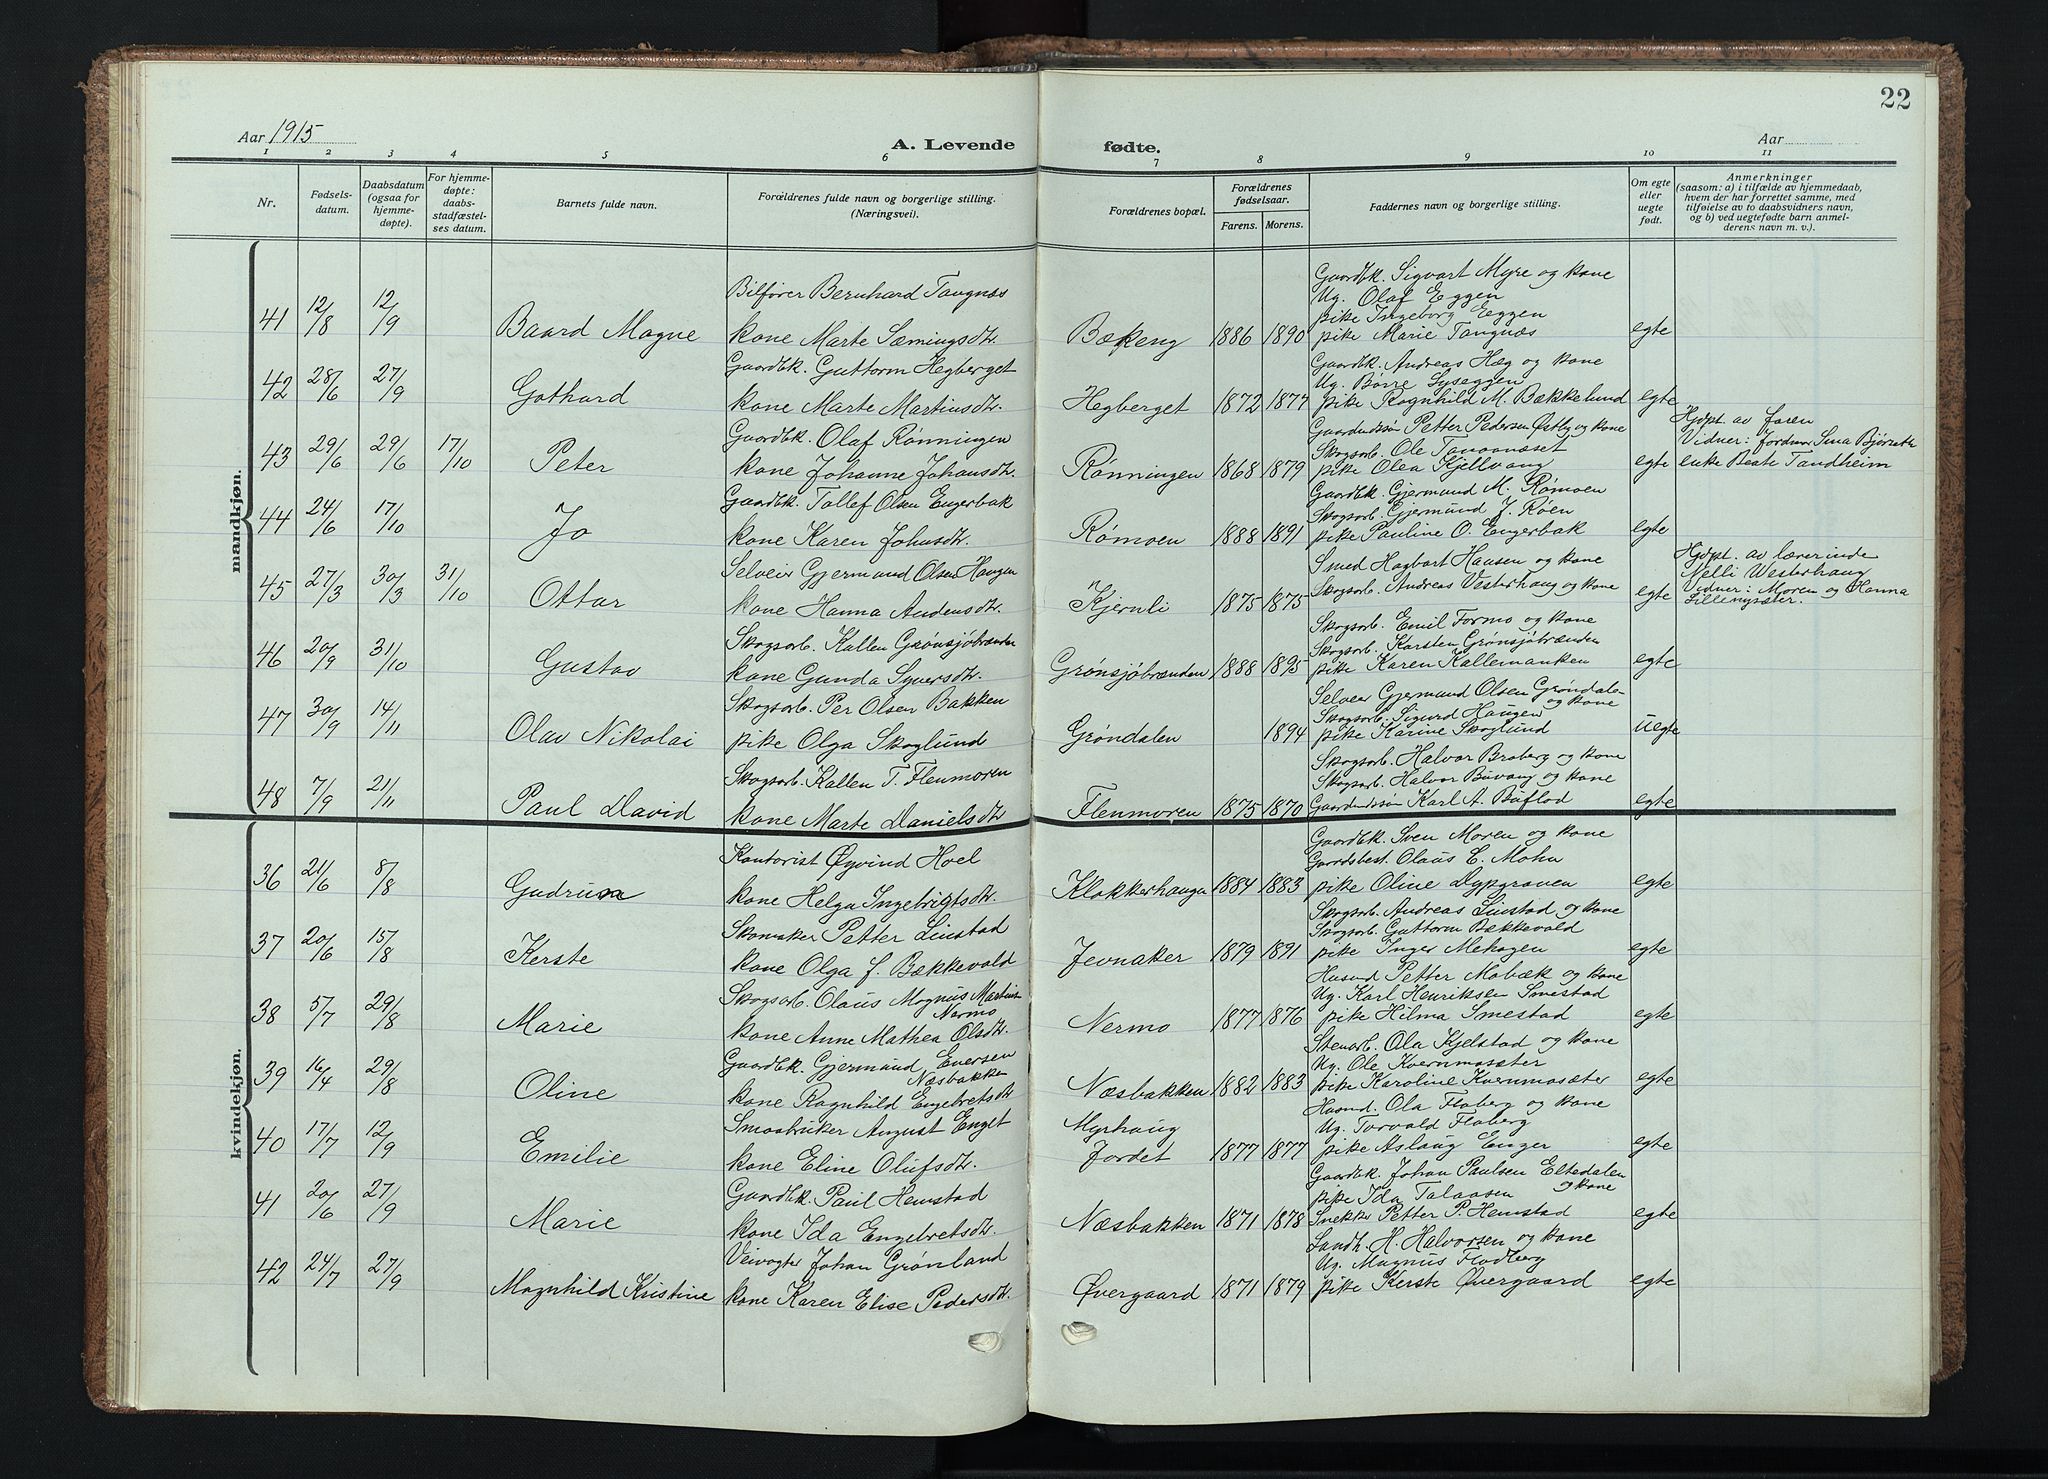 22
Aar 1915
A. Levende fødte.
Aar
1 2 3 4 5 6 7 8 9 10 11
Nr.
Fødsels-
datum.
Daabsdatum
(ogsaa for
hjemme-
døpte).
For hjemme-
døpte:
daabs-
stadfæstel-
ses datum.
Barnets fulde navn.
Forældrenes fulde navn og borgerlige stilling.
(Næringsvei).
Forældrenes bopæl.
Forældrenes
fødselsaar.
Farens. Morens.
Faddernes navn og borgerlige stilling.
Om egte
eller
uegte
født.
Anmerkninger
(saasom: a) i tilfælde av hjemmedaab,
hvem der har forrettet samme, med
tilføielse av to daabsvidners navn,
og b) ved uegtefødte barn anmel-
derens navn m. v.).
mandkjøn.
41 12/8 12/9 Baard Magne
Bilfører Bernhard Tangnæs
kone Marte Sæmingsdtr.
Bækeng 1886 1890
Gaardbk. Sigvart Myre og kone
Ug. Olaf Eggen
pike Ingeborg Eggen
pike Marie Tangnæs egte
42 28/6 27/9 Gothard
Gaardbk. Guttorm Hegberget
kone Marte Martinsdtr.
Hegberget 1872 1877
Gaardbk. Andreas Hæg og kone
Ug. Børre Lyseggen
pike Ragnhild M. Bækkelund egte
43 29/6 29/6 17/10 Peter
Gaardbk. Olaf Rønningen
kone Johanne Johansdtr.
Rønningen 1868 1879
Petter Pedersen Østby og kone
Skogsarb. Ole
pike Olea Kjellvang egte
Hjdpt. av faren
Vidner: Jordmor Sina
enke Beate Tandheim
44 24/6 17/10 Jo
Gaardbk. Tollef Olsen Engerbak
kone Karen Johnsdtr.
Rømoen 1888 1891
Gaardbk. Gjermund M. Rømoen
Skogsarb. Gjermund J. Røen
pike Pauline O. Engerbak egte
45 27/3 30/3 31/10 Ottar
Selveier Gjermund Olsen Haugen
kone Hanna Andensdtr.
Kjernli 1875 1875
Smed Hagbart Hansen og kone
Skogsarb. Andreas Vesterhaug og kone egte
Hjdpt. av lærerinde
Nelli Westerhaug
Vidner: Moren og Hanna
Lillengsæter.
46 20/9 31/10 Gustav
Skogsarb. Kallen Grønsjøbrænden
kone Gunda Syversdtr.
Grønsjøbrænden 1888 1895
Skogsarb. Emil Formo og kone
Skogsarb. Karsten Grønsjøbrænden
pike Karen Kallemanken egte
47 30/9 14/11 Olav Nikolai
Skogsarb. Per Olsen Bakken
pike Olga Skoglund
Grøndalen 1894
Selveier Gjermund Olsen Grøndalen
og kone
Skogsarb. Sigurd Haugen
pike Karine Skoglund uegte
48 7/9 21/11 Paul David
Skogsarb. Kallen T. Flenmoren
kone Marte Danielsdtr
Flenmoren 1875 1870
Skogsarb. Halvor Braberg og kone
Skogsarb. Halvor Buvang og kone
Karl A. Buflod egte
kvindekjøn.
36 21/6 8/8 Gudrun
Kontorist Øyvind Hoel
kone Helga Ingebrigtsdtr.
Klokkerhaugen 1884 1883
Gaardbk. Sven Moren og kone
Gaardsbest. Olaus E. Mohn
pike Oline Dypgraven egte
37 20/6 15/8 Kerste
Skomaker Petter Linstad
kone Olga f. Bækkevold
Jevnaker 1879 1891
Skogsarb. Andreas Linstad og kone
Skogsarb. Guttorm Bækkevold
pike Inger Mehagen egte
38 5/7 29/8 Marie
Skogsarb. Olaus Magnus Martins
Nermo
kone Anne Mathea Olsdtr.
Nermo 1877 1876
Husmd. Petter Mobæk og kone
Ug. Karl Henriksen Smestad
pike Hilma Smestad egte
39 16/4 29/8 Oline
Gaardbk. Gjermund Eversen
Næsbakken
kone Ragnhild Engebretsdtr
Næsbakken 1882 1883
Stenarb. Ola Kjelstad og kone
Ug. Ole Kvernmosæter
pike Karoline Kvernmosæter egte
40 17/7 12/9 Emilie
Smaabruker August Enget
kone Eline Olufsdtr.
Myrhaug
Jordet 1877 1877
Husmd. Ola Floberg og kone
Ug. Torvald Floberg
pike Aslaug Enger egte
41 20/6 27/9 Marie
Gaardbk. Paul Hemstad
kone Ida Engebretsdtr.
Næsbakken 1871 1878
Gaardbk. Johan Paulsen Eltedalen
og kone
pike Ida Talaasen
Snekker Petter P. Hemstad egte
42 24/7 27/9 Magnhild Kristine
Veivogter Johan Grønland
kone Karen Elise Pedersdtr.
Øvergaard 1871 1879
Landh. H. Halvorsen og kone
Ug. Magnus Flodberg
pike Kerste Øvergaard egte